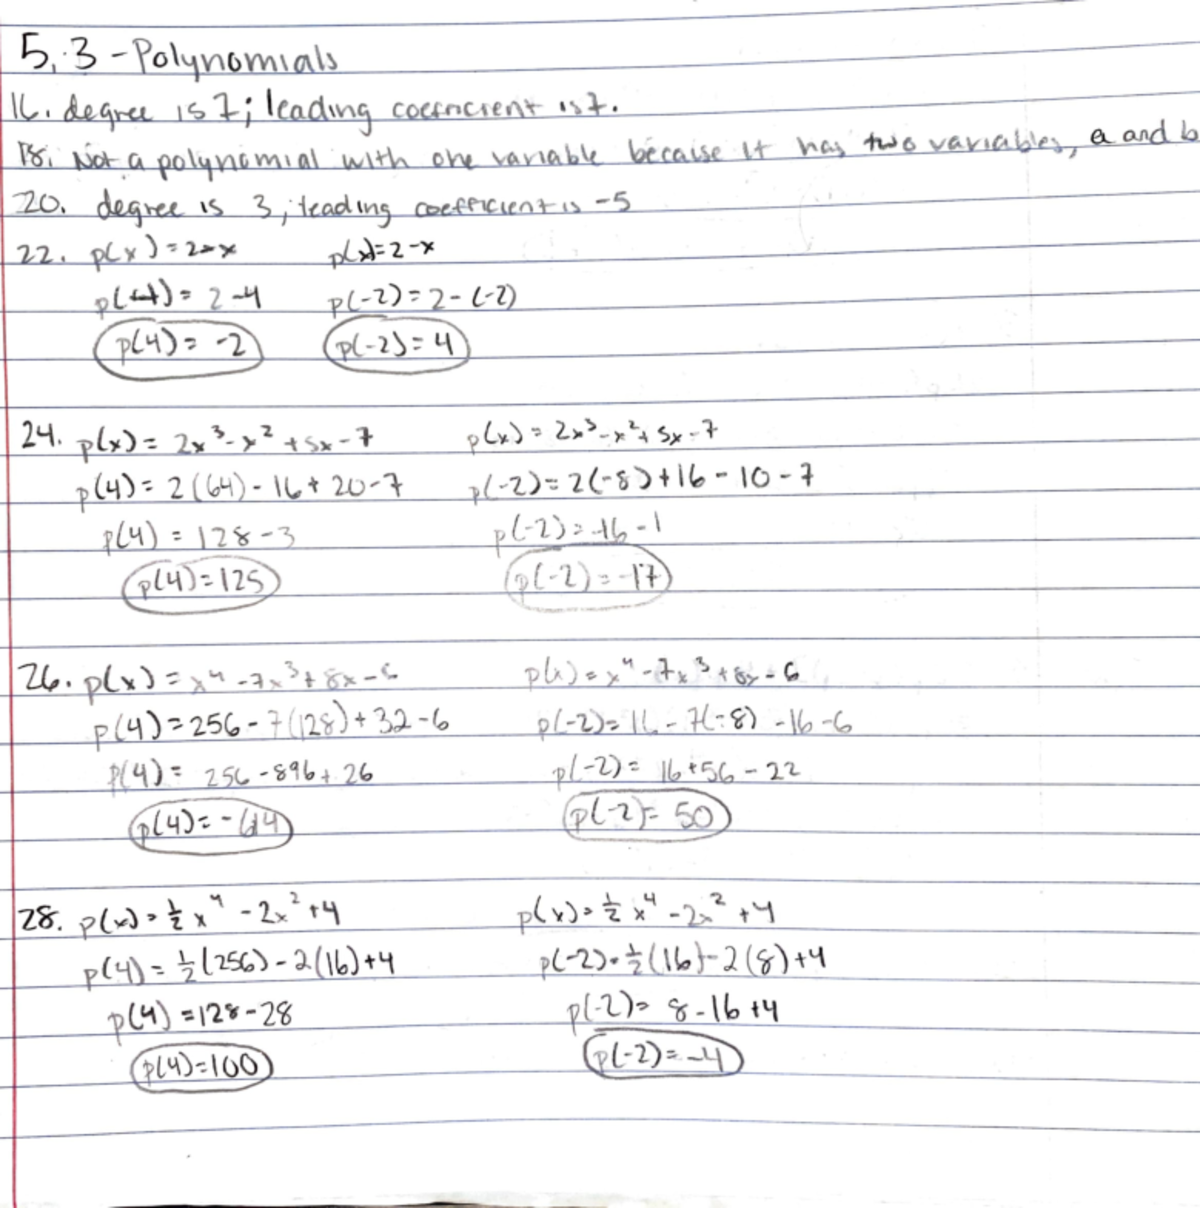 5.3 - Polynomials
16. degree is 7; leading coefficient is 7.
18. Not a polynomial with one variable because it has two variables, a and b
20. degree is 3, leading coefficient is -5
22. p(x) = 2-x p(x)=2-x
p(4) = 2-4 p(-2) = 2-(-2)
p(4) = -2 p(-2) = 4
24. p(x) = 2x³-x²+5x-7 p(x) = 2x³-x²+5x-7
p(4) = 2(64) - 16 + 20-7 p(-2) = 2(-8)+16 - 10 - 7
p(4) = 128-3 p(-2) = -16-1
p(4) = 125 p(-2) = -17
26. p(x) = x⁴-7x³+8x-6 p(x) = x⁴-7x³+8x-6
p(4) = 256-7(128)+32-6 p(-2) = 16-7(-8) -16-6
p(4) = 256-896+26 p(-2) = 16+56-22
p(4) = -614 p(-2) = 50
28. p(x) = ½x⁴-2x²+4 p(x) = ½x⁴-2x²+4
p(4) = ½(256)-2(16)+4 p(-2) = ½(16)-2(8)+4
p(4) = 128-28 p(-2) = 8-16+4
p(4)=100 p(-2) = -4